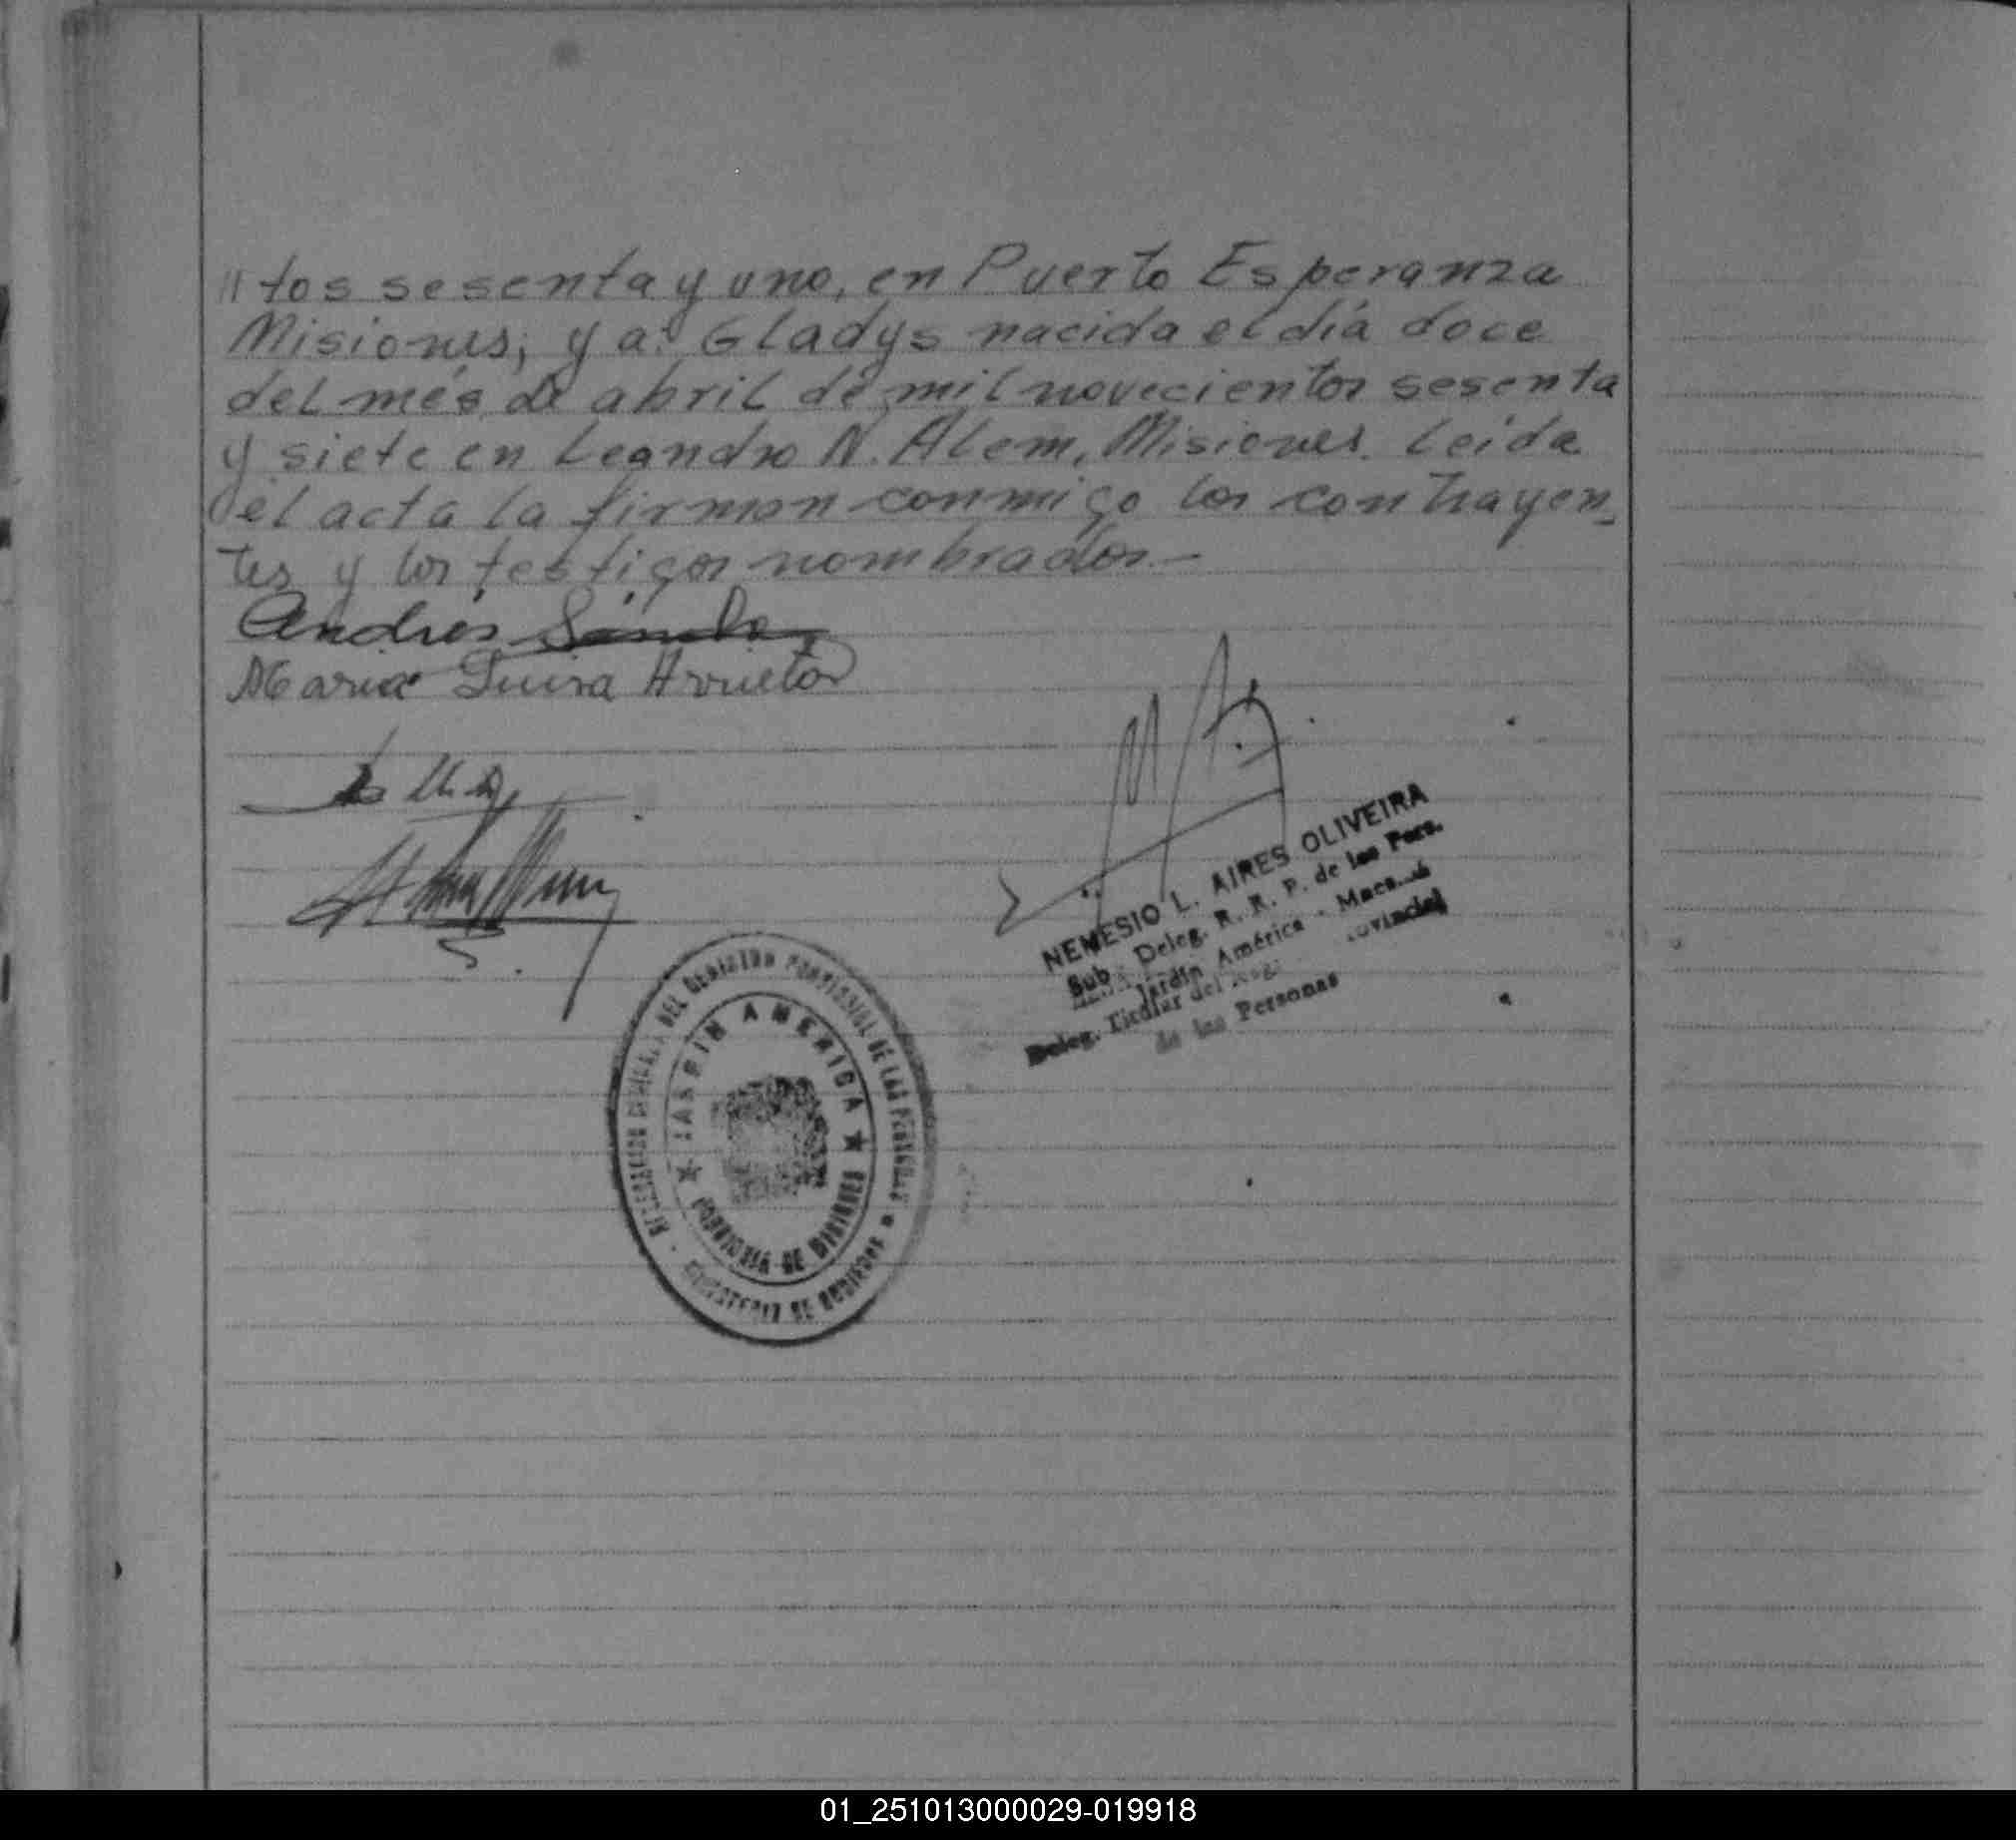 "tos sesenta y uno, en Puerto Esperanza
Misiones, y a: Gladys nacida el día doce
del més de abril de mil novecientos sesenta
y siete en Leandro N. Alem, Misiones. Leída
el acta la firman conmigo los contrayen-
tes y los testigos nombrados.-
Andrés
Maria Luisa Arrieta
NEMESIO L. AIRES OLIVEIRA
Sub. Deleg. R. R. P. de las Pers.
Jardín América - 
Deleg. Titular del
de las Personas
DEL REGISTRO PROVINCIAL DE LAS PERSONAS
JARDIN AMERICA
PROVINCIA DE MISIONES
MINISTERIO DE GOBIERNO
01_251013000029-019918